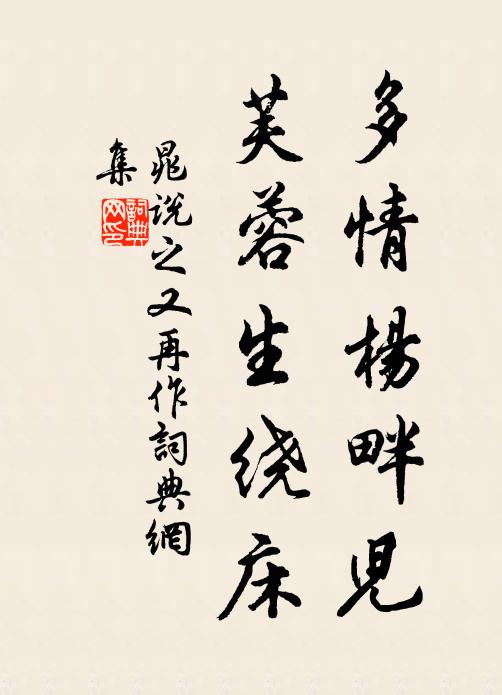 多情楊畔児
芙蓉生绕床
晁说之又再作詞典網
集
詞典
网印